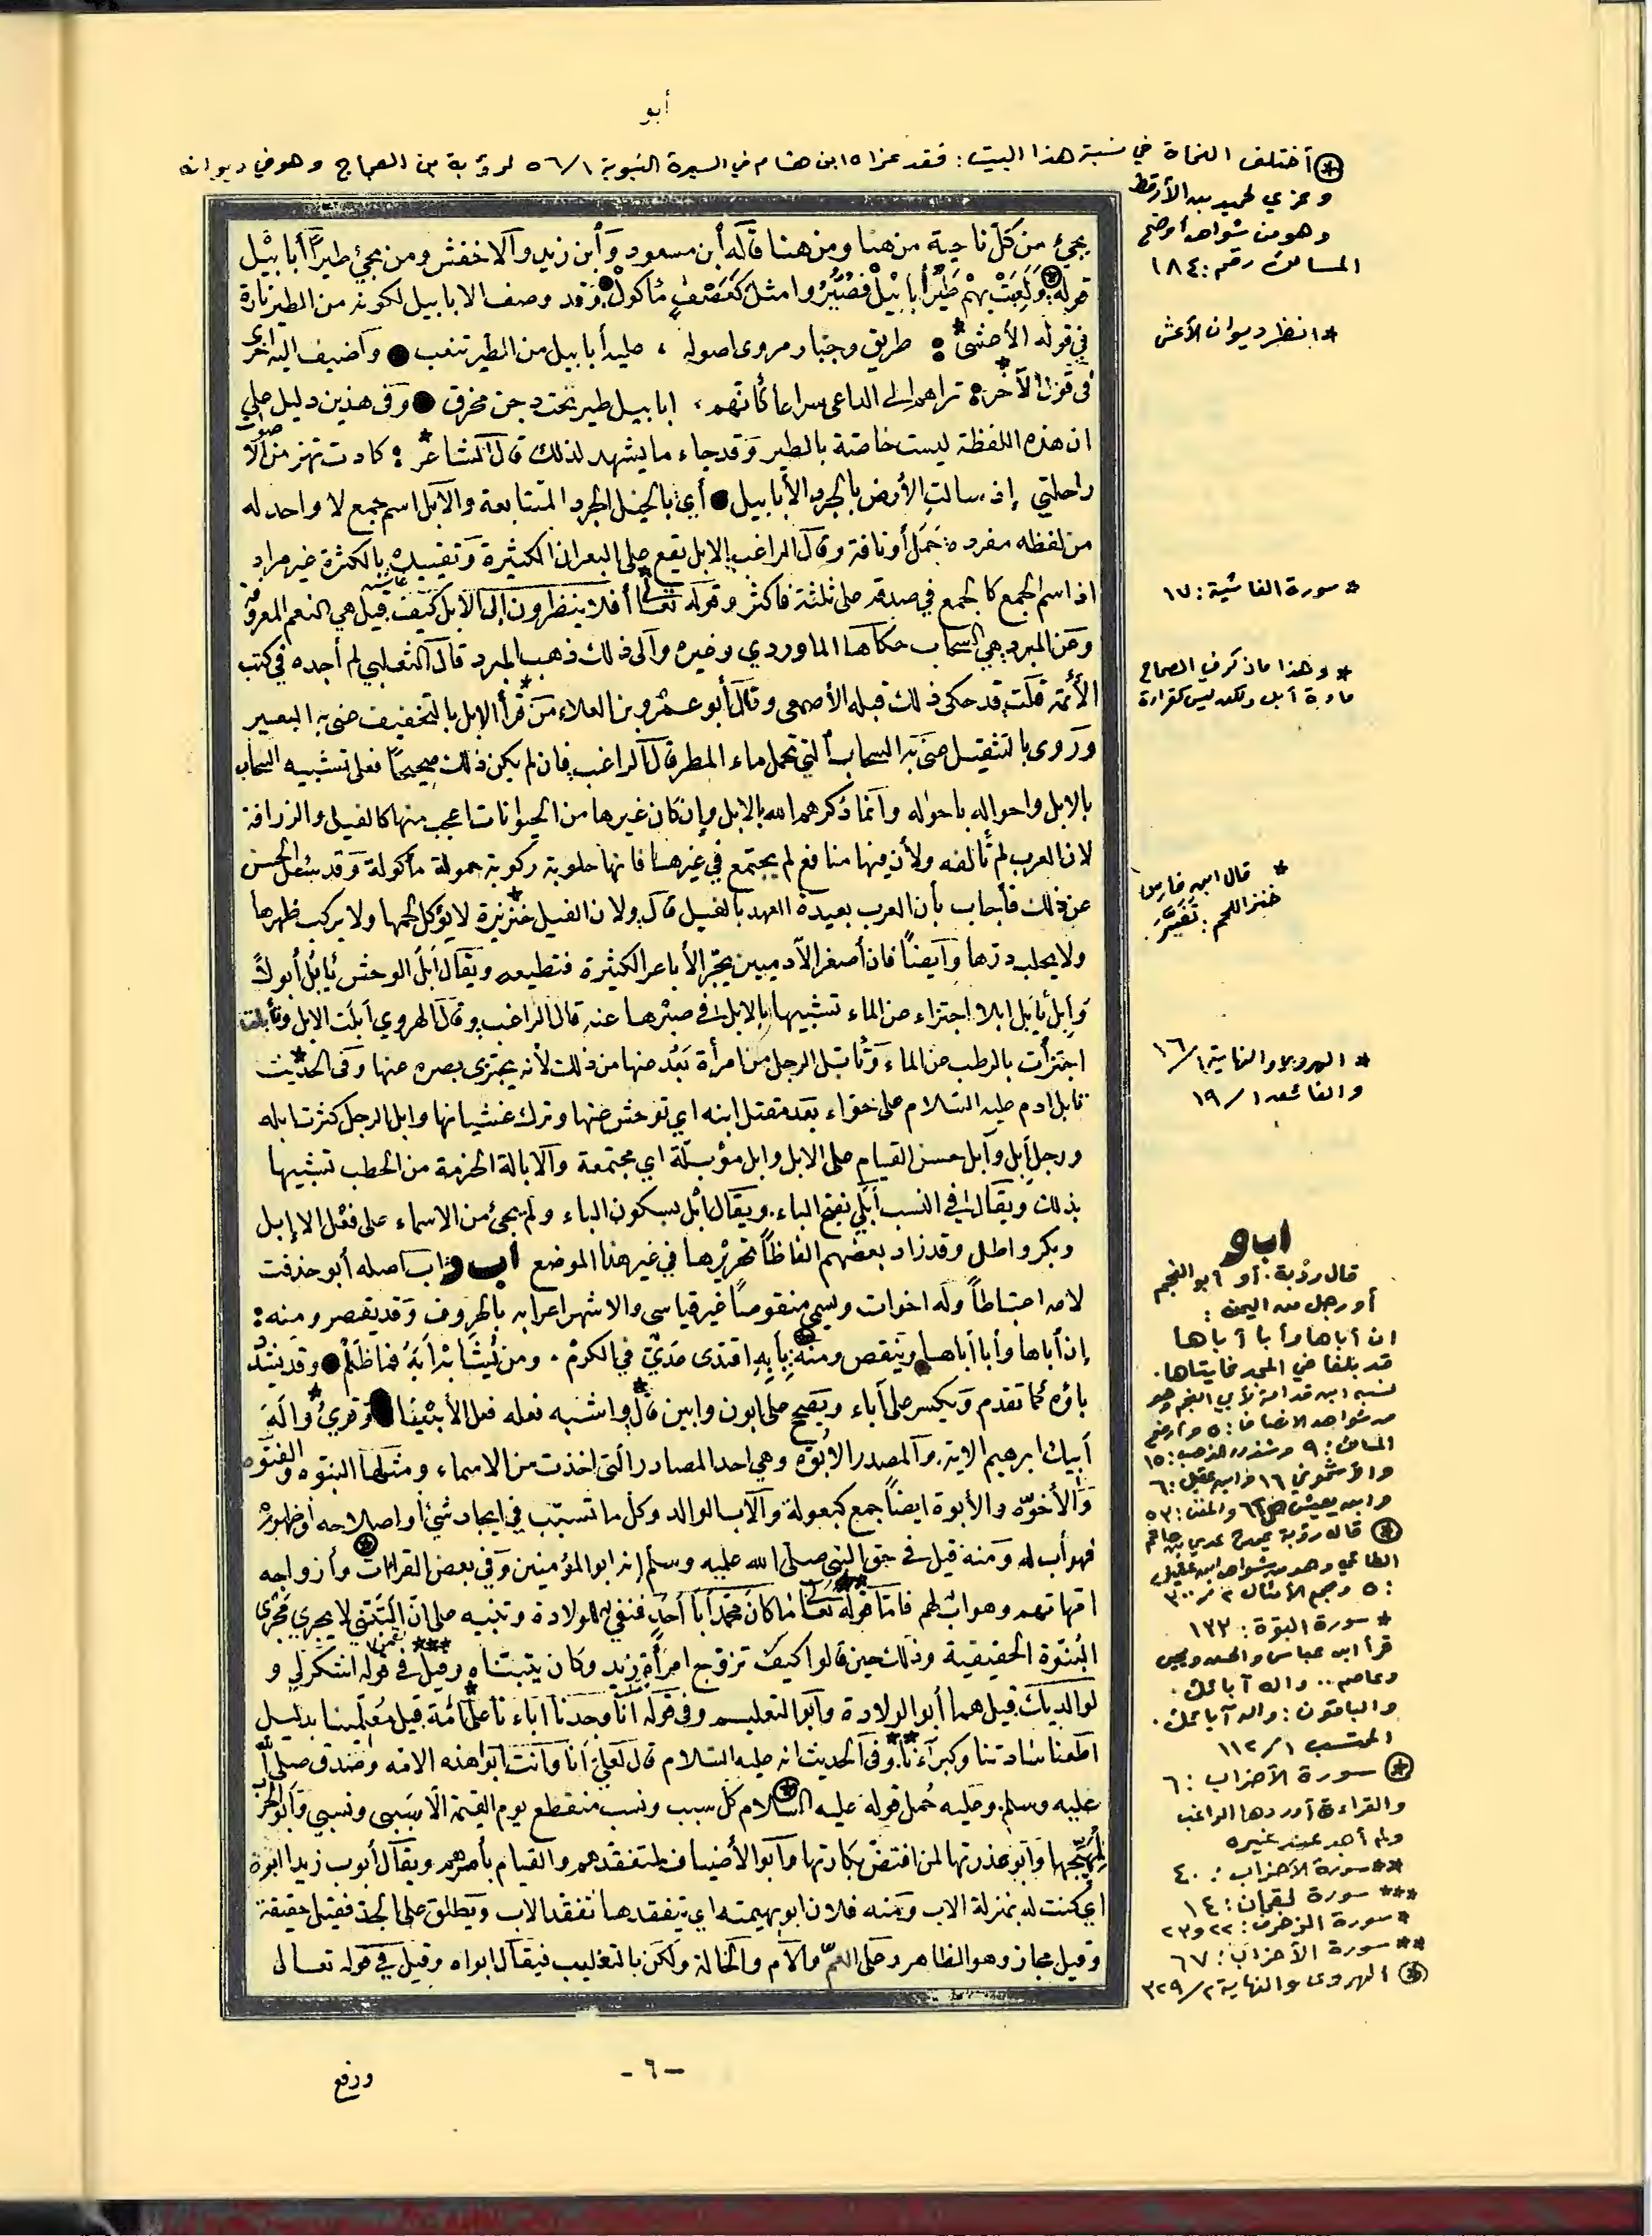 أبو
* اختلف النحاة في نسبة هذا البيت: فقد عزاه ابن هشام في السيرة النبوية ٥٦/١ لرؤبة بن العجاج وهو في ديوانه
وعزي لحميد بن الأرقط
وهو من شواهد أوضح
المسالك رقم: ١٨٤
يجيء من كل ناحية من هنا ومن هنا قاله ابن مسعود وابن زيد والاخفش ومن مجيء طيرا أبابيل
قوله ولعبت بهم طير أبابيل فصيروا مثل كعصف مأكول وقد وصف الابابيل لكونه من الطير تارة
في قوله الأعشى: طريق وجبار رواء اصوله، عليه أبابيل من الطير تنعب وأضيف اليه أخرى
* انظر ديوان الأعشى
في قول الآخر: تراهم إلى الداعي سراعا كأنهم، ابابيل طير تحت دجن مخرق وفي هذين دليل على
ان هذه اللفظة ليست خاصة بالطير وقد جاء ما يشهد لذلك قال الشاعر: كادت تهز من الاصوات
راحلتي إذ سالت الأرض بالجرد الأبابيل أي بالخيل الجرد المتتابعة والآبل اسم جمع لا واحد له
من لفظه مفرده جمل أو ناقة وقال الراغب الابل يقع على البعران الكثيرة وتقييده بالكثرة غير مراد
اذ اسم الجمع كالجمع في صدقه على ثلثة فاكثر وقوله تعالى أفلا ينظرون إلى الابل كيف قيل هي النعم المعروفة
* سورة الغاشية: ١٧
وعن المبرد هي السحاب حكاها الماوردي وغيره وآلى ذلك ذهب المبرد قال الثعلبي لم أجده في كتب
* وهذا ما ذكر في الصحاح
مادة أبل ولكن ليس كقراءة
الأئمة قلت قد حكى ذلك قبله الأصمعي وقال أبو عمرو بن العلاء من قرأ الابل بالتخفيف عنى به البعير
وروى بالتثقيل عنى به السحاب التي تحمل ماء المطر قال الراغب فان لم يكن ذلك صحيحا فعلى تشبيه السحاب
بالابل واحواله باحواله وانما ذكرهم الله بالابل وإن كان غيرها من الحيوانات اعجب منها كالفيل والزرافة
لان العرب لم تألفه ولأن فيها منافع لم يجتمع في غيرها فانها حلوبة ركوبة حمولة مأكولة وقد سئل الحسن
عن ذلك فأجاب بأن العرب بعيدة العهد بالفيل قال ولان الفيل خنزيرة لا يؤكل لحمها ولا يركب ظهرها
* قال ابن فارس:
خنز اللحم: تغير.
ولا يحلب درها وايضا فان أصغر الآدميين يجر الأباعر الكثيرة فتطيعه ويقال ابل الوحش يأبل أبولا
وأبل يأبل ابلا اجتزاء عن الماء تشبيها بالابل في صبرها عنه قال الراغب وقال الهروي ابلت الابل وتأبلت
اجتزأت بالرطب عن الماء وتأبل الرجل من امرأة بعد عنها من ذلك لأنه يجتزى بصره عنها وفي الحديث
* الهروي والنهاية ١٦/١
والفائق ١٩/١
تأبل ادم عليه السلام على حواء بعد مقتل ابنه اي توحش عنها وترك غشيانها وابل الرجل كثرت ابله
ورجل ابل وآبل حسن القيام على الابل وابل مؤبلة اي مجتمعة والابالة الحزمة من الحطب تشبيها
بذلك ويقال في النسب ابلي بفتح الباء ويقال ابل بسكون الباء ولم يجئ من الاسماء على فعل الا إبل
وبكر واطل وقد زاد بعضهم الفاظا تحريرها في غير هذا الموضع اب و اب اصله أبو حذفت
لامه اعتباطا وله اخوات ويسمى منقوصا غير قياسي والاشهر اعرابه بالحروف وقد يقصر ومنه:
إن أباها وأبا أباها وينقص ومنه بأبه اقتدى عدي في الكرم. ومن يشابه أبه فما ظلم وقد تشدد
باؤه كما تقدم ويكسر على آباء ويصح على ابون وابين قال واشبه فعله فعل الأبينا وقرئ واله
أبيك ابرهيم الاية. والمصدر الأبوة وهي احد المصادر التي اخذت من الاسماء ومثلها البنوة والفتوة
والأخوة والأبوة ايضا جمع كبعولة والآب الوالد وكل ما تسبب في ايجاد شيء أو اصلاحه أو ظهوره
فهو أب له ومنه قيل في حق النبي صلى الله عليه وسلم انه ابو المؤمنين وفي بعض القراءات وأزواجه
امهاتهم وهو اب لهم فاما قوله تعالى ما كان محمد أبا أحد فنفي للولادة وتنبيه على ان التبني لا يجري مجرى
البنوة الحقيقية وذلك حين قالوا كيف تزوج امرأة زيد وكان يتبناه وقيل في قوله ان اشكر لي و
لوالديك قيل هما أبو الولادة وأبو التعليم وفي قوله انا وجدنا آباءنا على امة قيل معلمينا بدليل
اطعنا سادتنا وكبراءنا وفي الحديث انه عليه السلام قال لعلي أنا وأنت ابوا هذه الامة وصدق صلى الله
عليه وسلم وعليه حمل قوله عليه السلام كل سبب ونسب منقطع يوم القيمة الا سببي ونسبي وأبو الحرب
لمهيجها وأبو عذرتها لمن افتض بكارتها وأبو الأضياف لمتفقدهم والقيام بأمرهم ويقال أبوت زيدا ابوة
اي كنت له بمنزلة الاب ومنه فلان ابو بهيمته اي يتفقدها تفقد الاب ويطلق على الجد فقيل حقيقة
وقيل مجاز وهو الظاهر وعلى العم والأم والخالة ولكن بالتغليب فيقال ابواه وقيل في قوله تعالى
اب و
قال رؤبة. أو أبو النجم
أو رجل من اليمن:
ان أباها وأبا أباها
قد بلغا في المجد غايتاها.
نسبه ابن قدامة لأبي النجم وهو
من شواهد الانصاف: ٥ وأوضح
المسالك: ٩ وشذور الذهب: ١٥
والأشموني ١٦ وابن عقيل: ٦
وابن يعيش والمغني: ٥٣
* قاله رؤبة يمدح عدي بن حاتم
الطائي وهو من شواهد ابن عقيل
: ٥ ومجمع الأمثال ٣٠٠/٢
* سورة البقرة: ١٣٣
قرأ ابن عباس والحسن ويحيى
وعاصم.. واله آبائك.
والباقون: واله آبائك.
المحتسب ١١٢/١
* سورة الأحزاب: ٦
والقراءة أوردها الراغب
ولم أجد عند غيره
** سورة الأحزاب: ٤٠
*** سورة لقمان: ١٤
* سورة الزخرف: ٢٢ و ٢٣
** سورة الأحزاب: ٦٧
* الهروى والنهاية ٣٢٩/٢
- ٦ -
ورفع